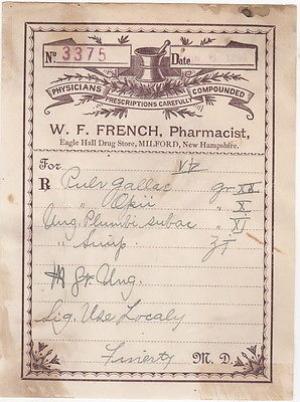 No 3375 Date
PHYSICIANS PRESCRIPTIONS CAREFULLY COMPOUNDED
W. F. FRENCH, Pharmacist,
Eagle Hall Drug Store, MILFORD, New Hampshire.
For
R Pulv Gallac gr XX
" Opii " X
Ung. Plumbi subac " XI
" Simp. ℥ I
M ft. Ung.
Sig. Use Localy
Finerty M. D.